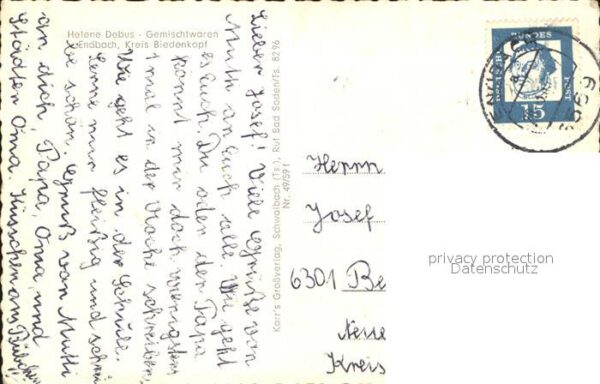 Helene Debus - Gemischtwaren
Endbach, Kreis Biedenkopf
Lieber Josef! Viele Grüße von
Mutti an Euch alle. Wie geht
es Euch. Du oder der Papa
könnt mir doch wenigstens
1 mal in der Woche schreiben.
Wie geht es in der Schule.
Lerne nur fleißig und schrei
be schön. Gruß von Mutti
an dich, Papa, Oma, und
Städten Oma Küsschen am
Karr's Großverlag, Schwalbach (Ts.), Ruf Bad Soden/Ts. 8296
Nr. 49/591
DEUTSCHE BUNDESPOST
15
Herrn
Josef
6301 Be
Kreis
privacy protection
Datenschutz